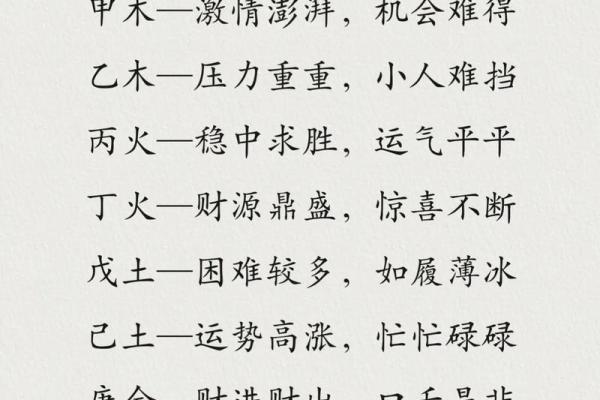 甲木—激情澎湃，机会难得
乙木—压力重重，小人难挡
丙火—稳中求胜，运气平平
丁火—财源鼎盛，惊喜不断
戊土—困难较多，如履薄冰
己土—运势高涨，忙忙碌碌
庚金—财进财出，口舌是非